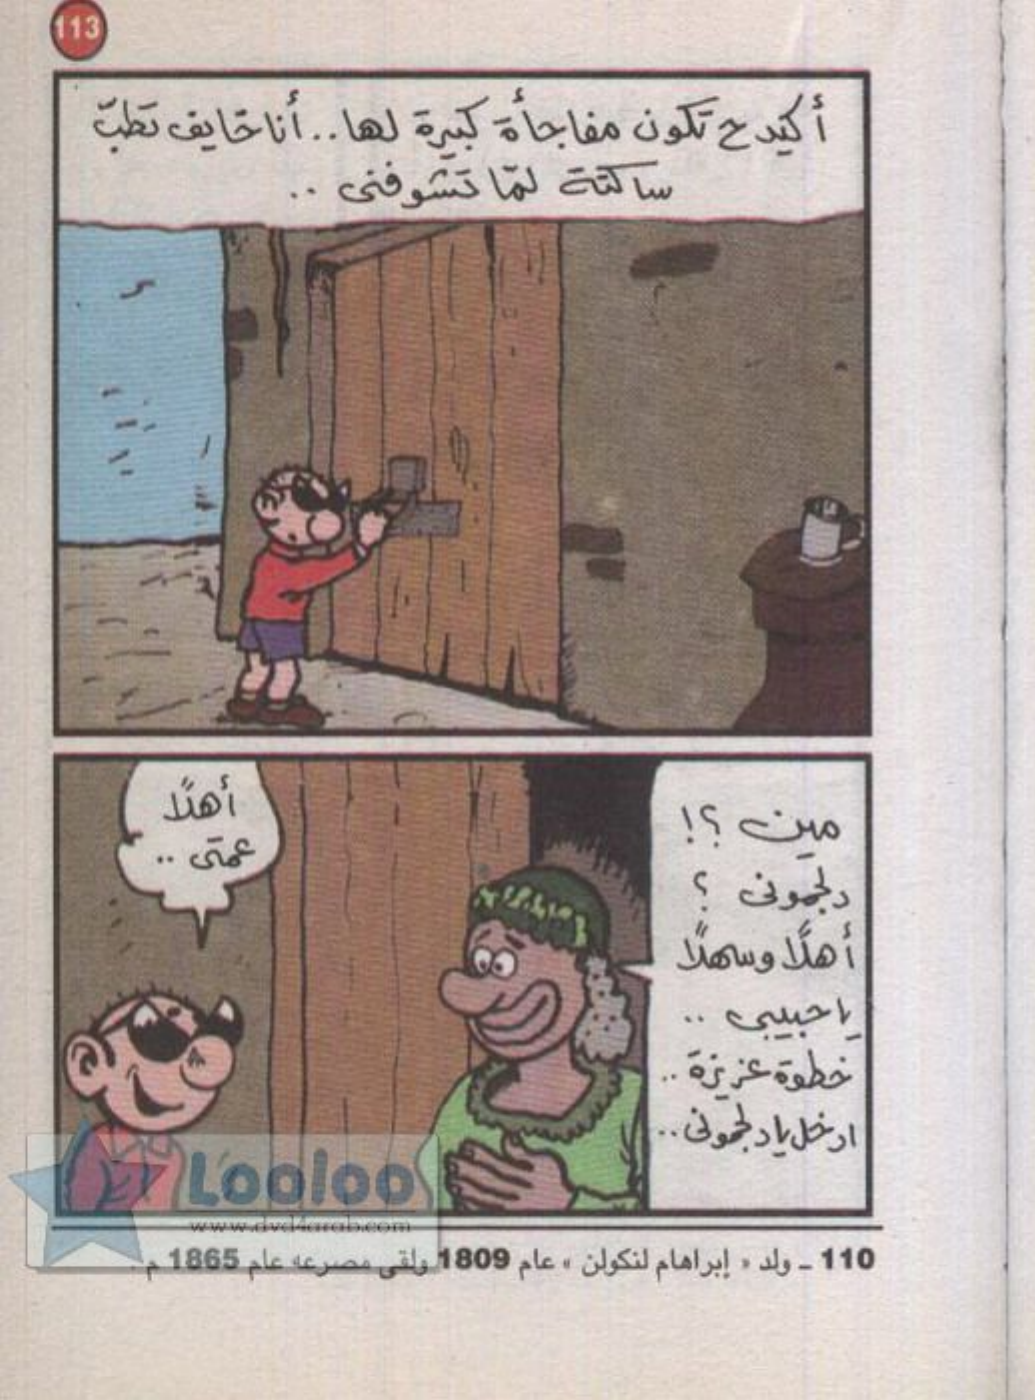 113
أكيد ح تكون مفاجأة كبيرة لها.. أنا خايف تطبّ
ساكتة لمّا تشوفنى ..
مين ؟!
دلجمونى ؟
أهلًا وسهلًا
يا حبيبى ..
خطوة عزيزة ..
ادخل يا دلجمونى ..
أهلًا
عمتى ..
Looloo
www.dvd4arab.com
110 ـ ولد « إبراهام لنكولن » عام 1809 ولقى مصرعه عام 1865 م .